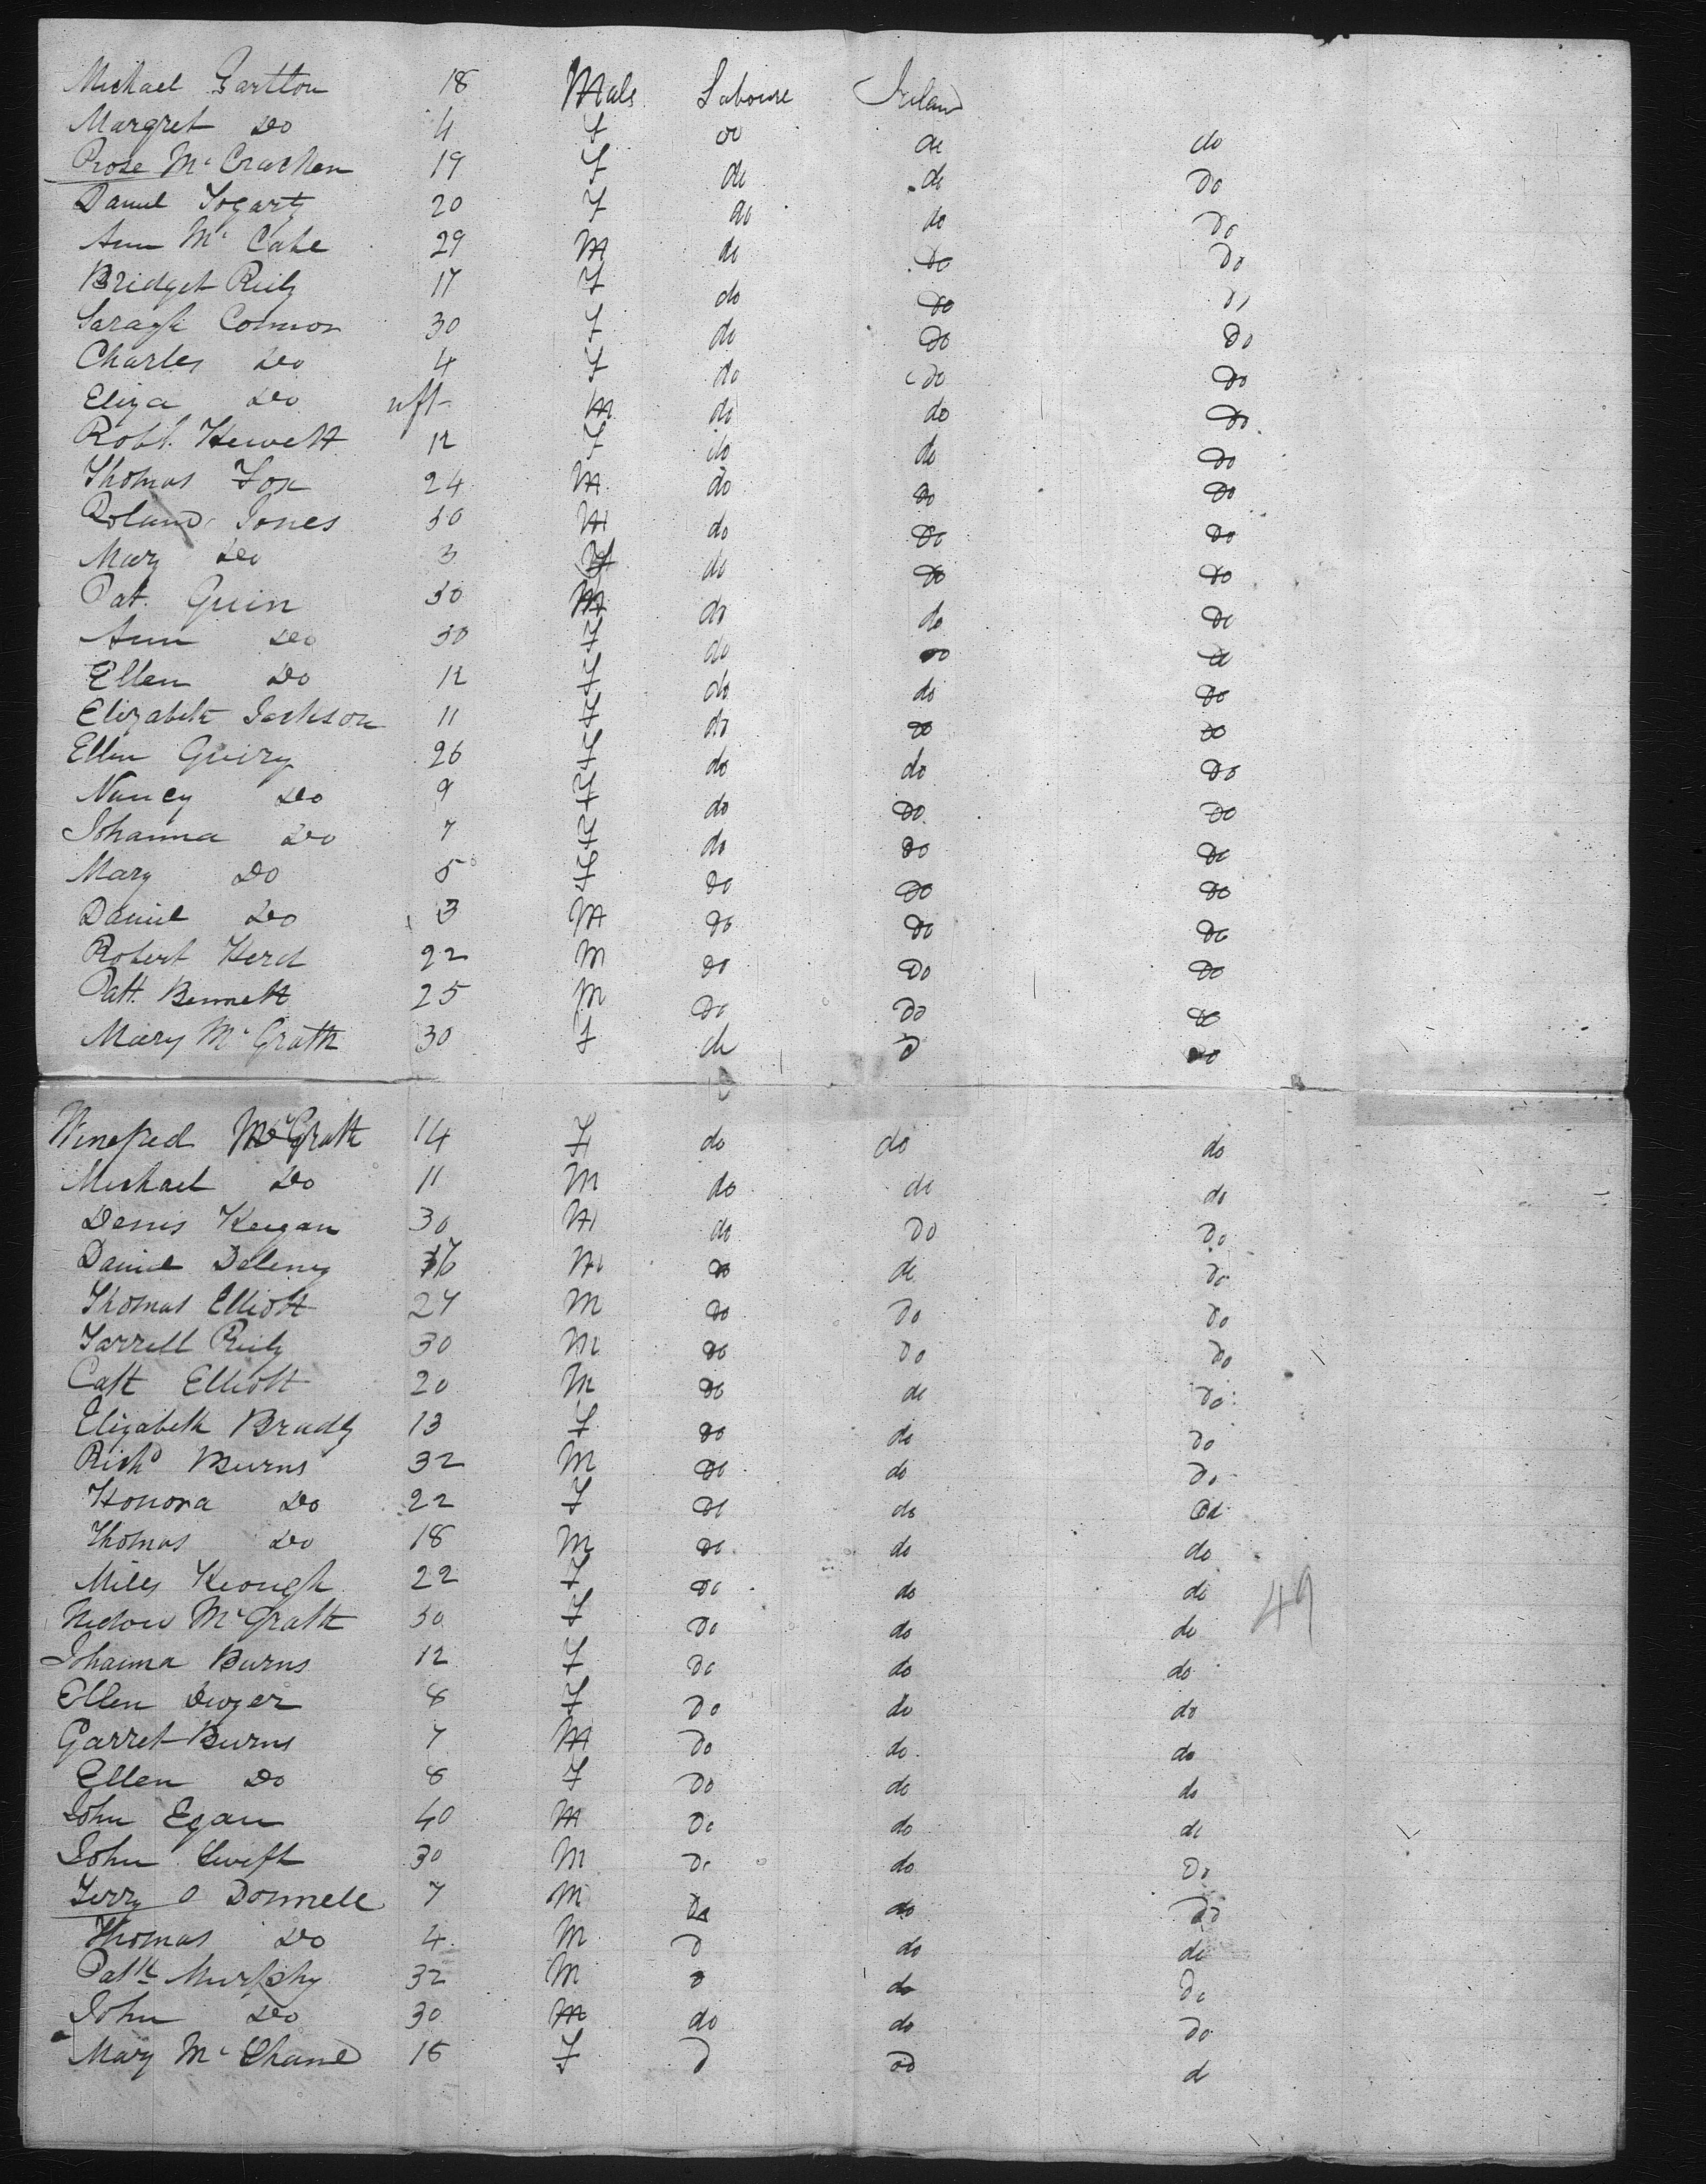 Michael Gartton 18 Male Laboure Ireland
Margret Do 4 F do do do
Rose McCracken 19 F do do do
Daniel Fogarty 20 F do do do
Ann McCabe 29 M do do do
Bridget Reily 17 F do do do
Saragh Connor 30 F do do do
Charles Do 4 F do do do
Eliza Do inft M do do do
Robt. Hewett 12 F do do do
Thomas Fox 24 M do do do
Roland Jones 30 M do do do
Mary Do 3 F do do do
Pat. Guin 50 M do do do
Ann Do 50 F do do do
Ellen Do 12 F do do do
Elizabeth Jackson 11 F do do do
Ellen Guiry 26 F do do do
Nancy Do 9 F do do do
Johanna Do 7 F do do do
Mary Do 5 F do do do
Daniel Do 3 M do do do
Robert Herd 22 M do do do
Patt. Bennett 25 M do do do
Mary McGrath 30 F do d do
Winefred McGrath 14 F do do do
Michael Do 11 M do do do
Denis Keegan 30 M do do do
Daniel Deleny M do do do
Thomas Elliott 27 M do do do
Farrell Reily 30 M do do do
Cath Elliott 20 M do do do
Elizabeth Brady 13 F do do do
Richd Burns 32 M do do do
Honora Do 22 F do do do
Thomas Do 18 M do do do
Miles Keough 22 F do do do
Widow McGrath 50 F do do do
49
Johanna Burns 12 F do do do
Ellen Dwyer 8 F do do do
Garret Burns 7 M do do do
Ellen Do 8 F do do do
John Egan 40 M do do do
John Swift 30 M do do do
Terry O Donnell 7 M do do do
Thomas Do 4 M d do do
Patk Murphy 32 M d do do
John Do 30 M do do do
Mary McShane 16 F d do d